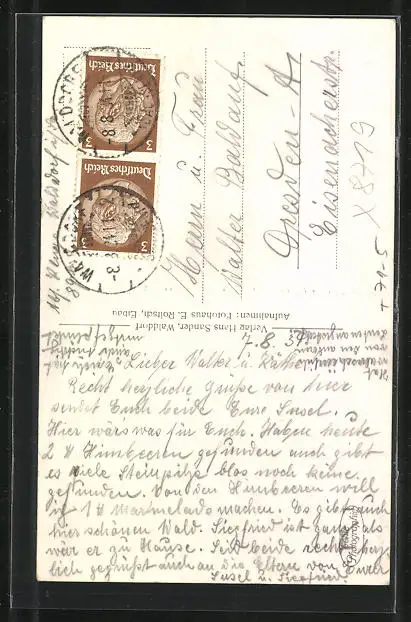 7. 8. 34.
Lieber Walter u. Käthe!
Recht herzliche Grüße von hier
sendet Euch beide Eure Susel.
Hier wärs was für Euch. Haben heute
2 ℔ Himbeeren gefunden auch gibt
es viele Steinpilze blos noch keine
gefunden. Von den Himbeeren will
ich 1 ℔ Marmelade machen. Es gibt auch
hier schönen Wald. Siegfried ist ganz als
wär er zu Hause. Seid beide recht herz-
lich gegrüßt auch an die Eltern von Eurer
Susel u. Siegfried
Verlag Hans Sander, Walddorf
Aufnahmen: Fotohaus E. Roitsch, Eibau
Deutsches Reich
3 3
Deutsches Reich
3 3
Herrn u. Frau
Walter Baldauf
Dresden-A.
Eisenacherstr.
X 8719
+ 71-5
Photographie